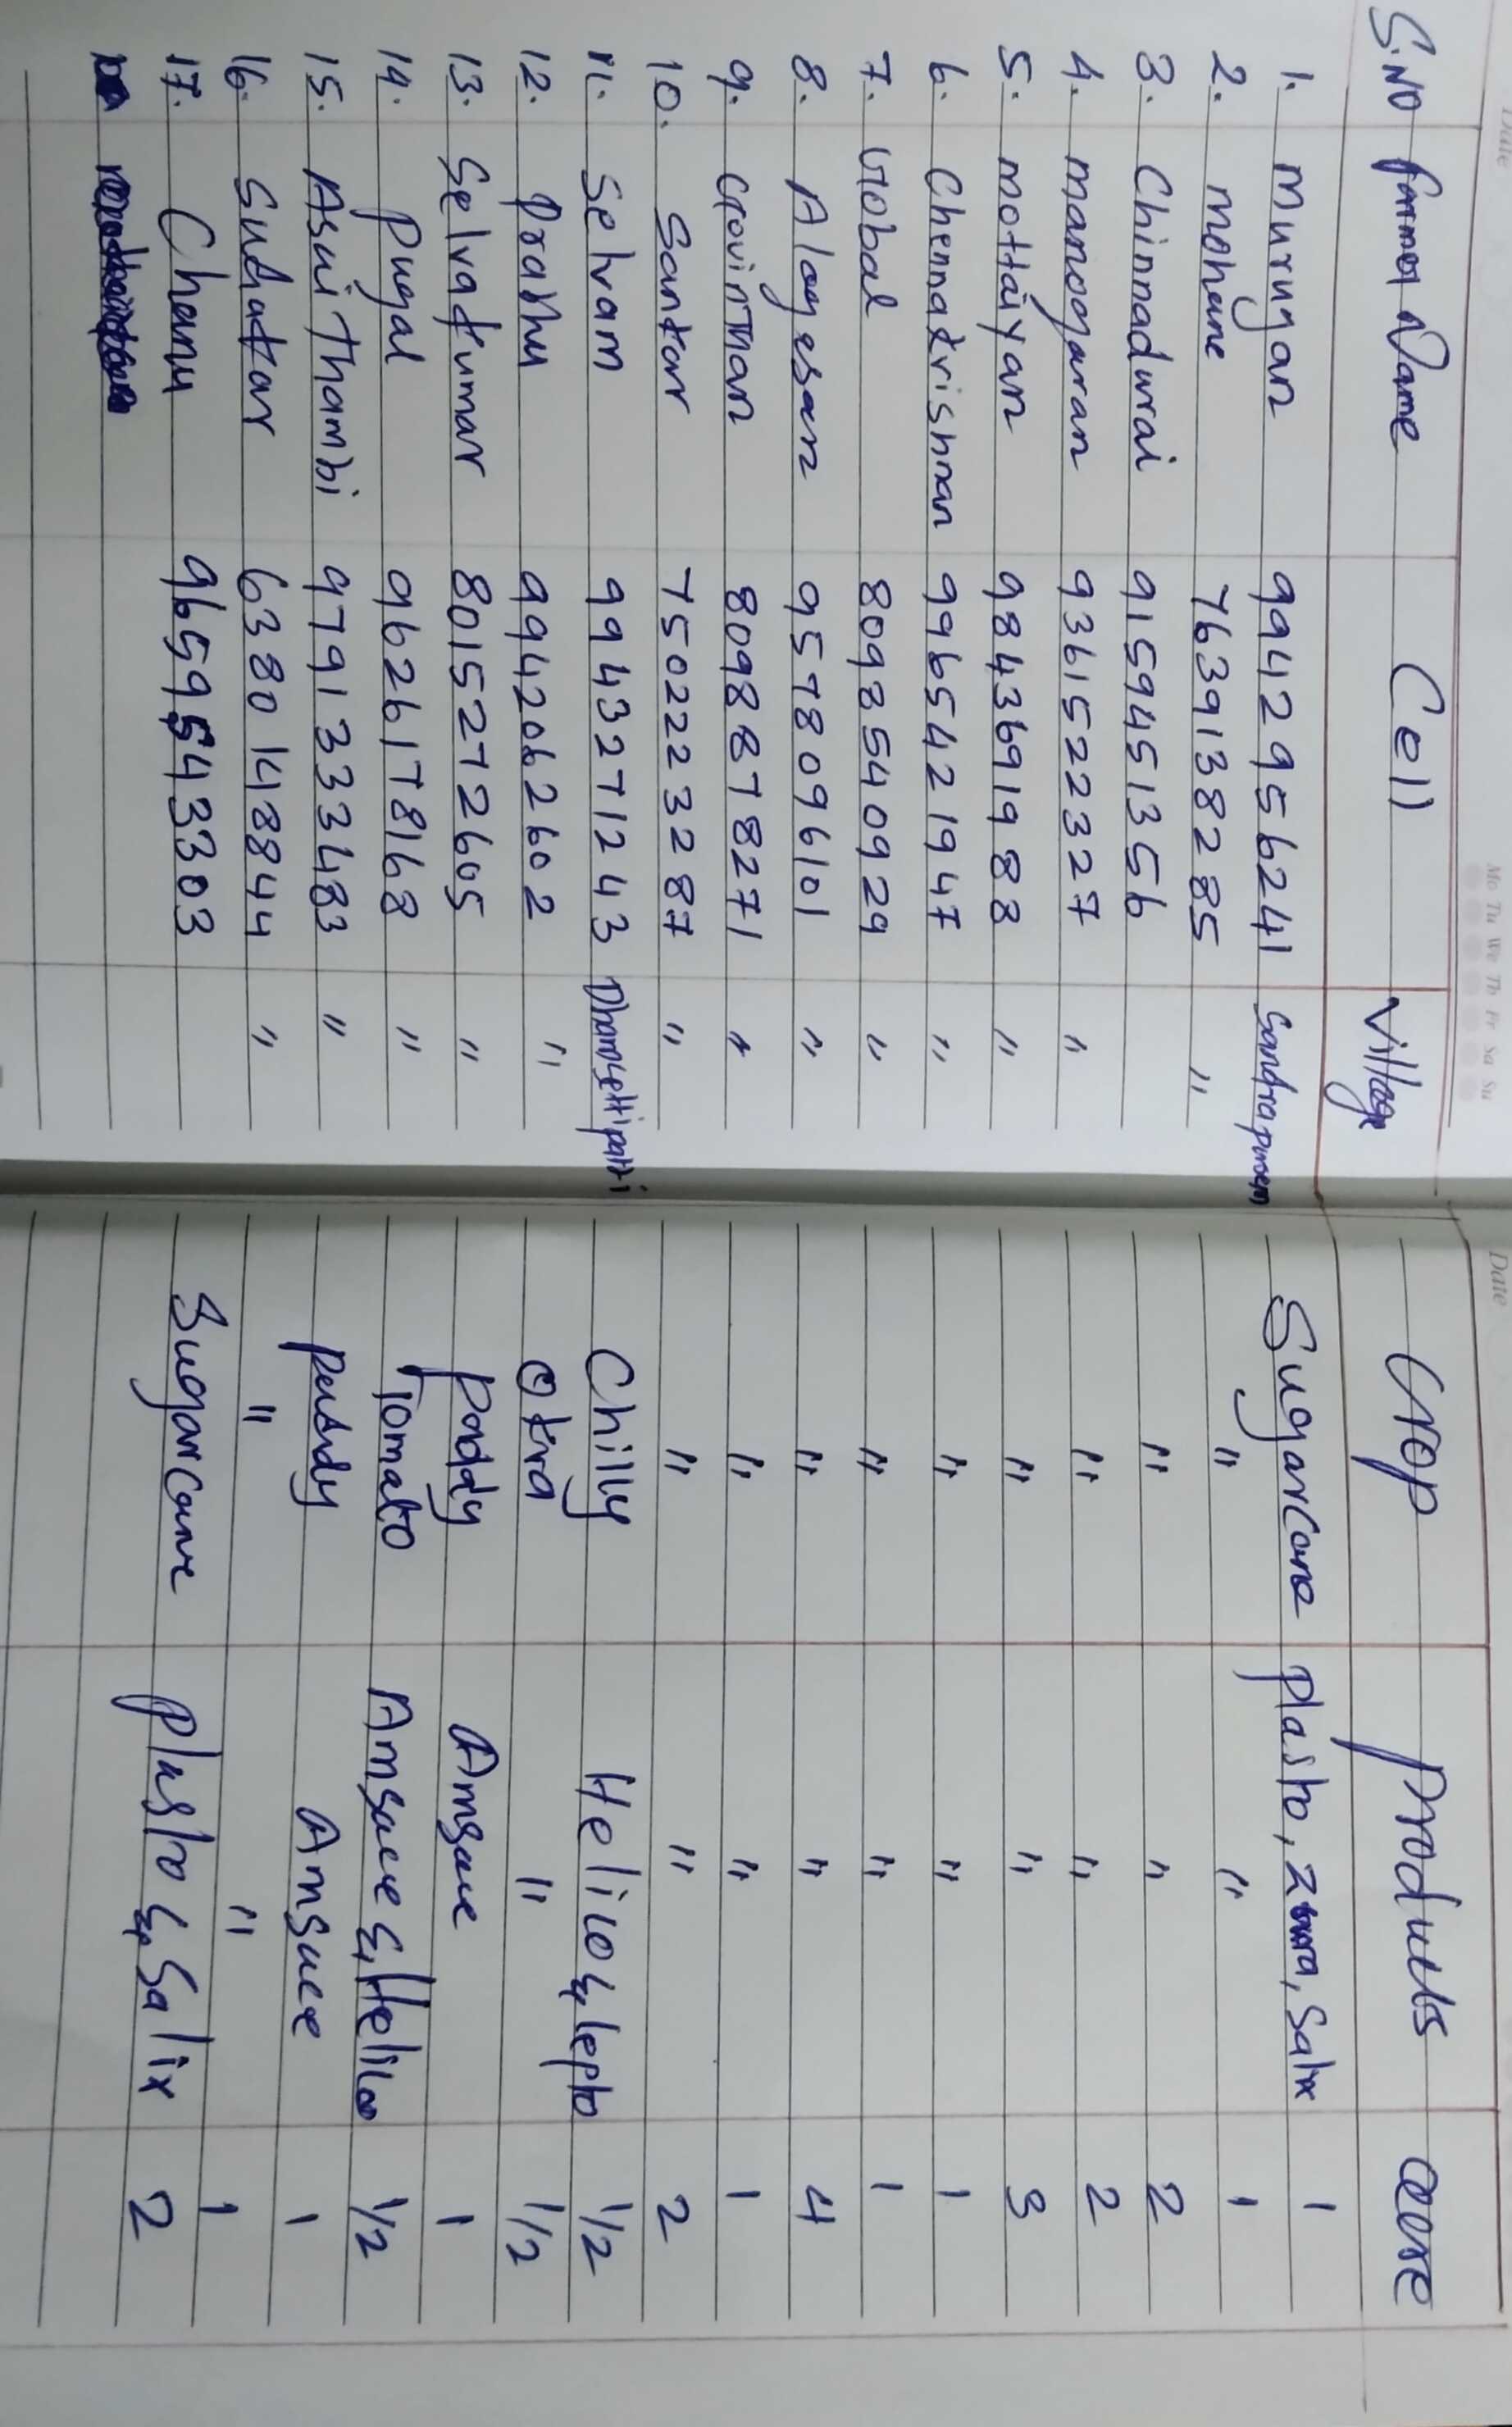 Date
Mo Tu We Th Fr Sa Su
Date
S.NO Farmer Name Cell Village Crop Products acre
1. Murugan 99412956241 Sugarcane plasto, zura, Salix 1
2. mohane 7639138285 " " " 1
3. Chinnadurai 9159451356 " " 2
4. manogaran 9361522327 " " " 2
5. mottaiyan 9843691988 " " " 3
6. Chennakrishnan 9965421947 " " " 1
7. Gobal 8098540929 " " " 1
8. Alagesan 9578096101 " " " 4
9. Govinthan 8098878271 " " " 1
10. Sankar 7502223287 " " " 2
11. Selvam 9943271243 Dharmasettipatti Chilly Helico & lepto 1/2
12. Prabhu 9942062602 " Okra " 1/2
13. Selvakumar 8015272605 " Paddy Amsace 1
14. Pugal 9626178168 " Tomato Amsace & Helico 1/2
15. Asui Thambi 9791333483 " Paddy Amsace 1
16. Sudhakar 6380148844 " " " 1
17. Chanu 9659543303 Sugarcane plasto & Salix 2